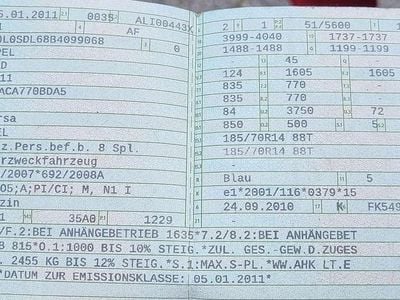 5.01.2011 0035 ALI00443X 2 1 51/5600 1
AF 3999-4040 1737-1737
0L0SDL68B4099068 1488-1488 1199-1199
PEL 3 0 45 -
124 1605 1605
ACA770BDA5 835 770 -
835 770 -
rsa 84 3750 72
EL 850 500 5
z.Pers.bef.b. 8 Spl. 185/70R14 88T
rzweckfahrzeug 185/70R14 88T
/2007*692/2008A -
05;A;PI/CI; M, N1 I Blau 5
zin e1*2001/116*0379*15
35A0 1229 24.09.2010 K FK549
/F.2:BEI ANHÄNGEBETRIEB 1635*7.2/8.2:BEI ANHÄNGEBET
B 815*O.1:1000 BIS 10% STEIG.*ZUL. GES.-GEW.D.ZUGES
. 2455 KG BIS 12% STEIG.*S.1:MAX.S-PL.*WW.AHK LT.E
*DATUM ZUR EMISSIONSKLASSE: 05.01.2011*